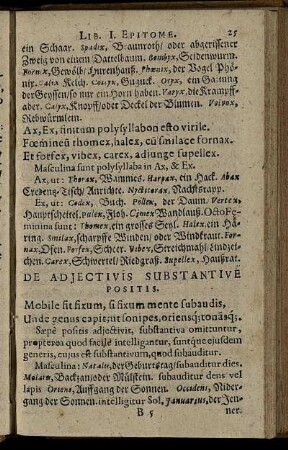 LIB. I. EPITOME. 25
ein Schaar. Spadix, Braunroth/ oder abgerissener
Zweig von einem Dattelbaum. Bombyx, Seidenwurm.
Fornix, Gewölb/ Hurenhauß. Phœnix, der Vogel Phö-
nix. Calix Kelch. Coccyx, Guguck. Oryx, ein Gattung
der Geyssen/ so nur ein Horn haben. Varyx, die Krampff-
ader. Calyx, Knopff/ oder Deckel der Blumen. Volvox,
Rebwürmlein.
Ax, Ex, finitum polysyllabon esto virile.
Fœmineū thomex, halex, cū smilace fornax.
Et forfex, vibex, carex, adjunge supellex.
Masculina sunt polysyllaba in Ax, & Ex.
Ax, ut: Thorax, Wammes. Harpax, ein Hack. Abax
Credentz-Tisch/ Anrichte. Nycticorax, Nachtkrapp.
Ex, ut: Codex, Buch. Pollex, der Daum. Vertex,
Hauptscheitel. Pulex, Floh. Cimex Wandlauß. Octo Fœ-
minina sunt: Thomex, ein grosses Seyl. Halex, ein Hä-
ring. Smilax, scharpffe Winden/ oder Windkraut. For-
nax, Ofen. Forfex, Scheer. Vibex, Streichmahl/
Carex, Schwertel/ Riedgraß. Supellex, Haußrat.
DE ADJECTIVIS SUBSTANTIVE
POSITIS.
Mobile sit fixum, si fixum mente subaudis,
Unde genus capiet: ut sonipes, oriensq; tonāsq;.
Sæpè positis adjectivis, substantiva omittuntur,
proptereà quod facilè intelligantur, suntque ejusdem
generis, cujus est substantivum, quod subauditur.
Masculina: Natalis, der Geburtstag/ subauditur dies.
Molaris, Backzan/ oder Mülstein. subauditur dens vel
lapis Oriens, Auffgang der Sonnen. Occidens, Nider-
gang der Sonnen. intelligitur Sol, Januarius, der Jen-
B 5 ner.